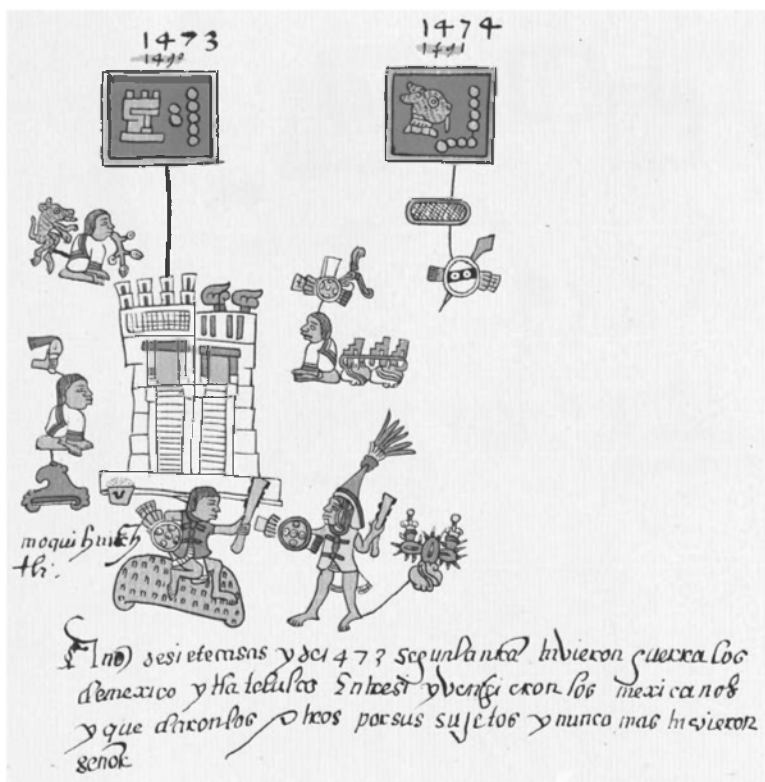 1473
1474
moquihuix
tli.
Año de siete casas y de 1473 segun la nra hivieron guerra los
de mexico y tlatelulco Entresi y vencieron los mexicanos
y quedaron los otros por sus sujetos y nunca mas hivieron
señor